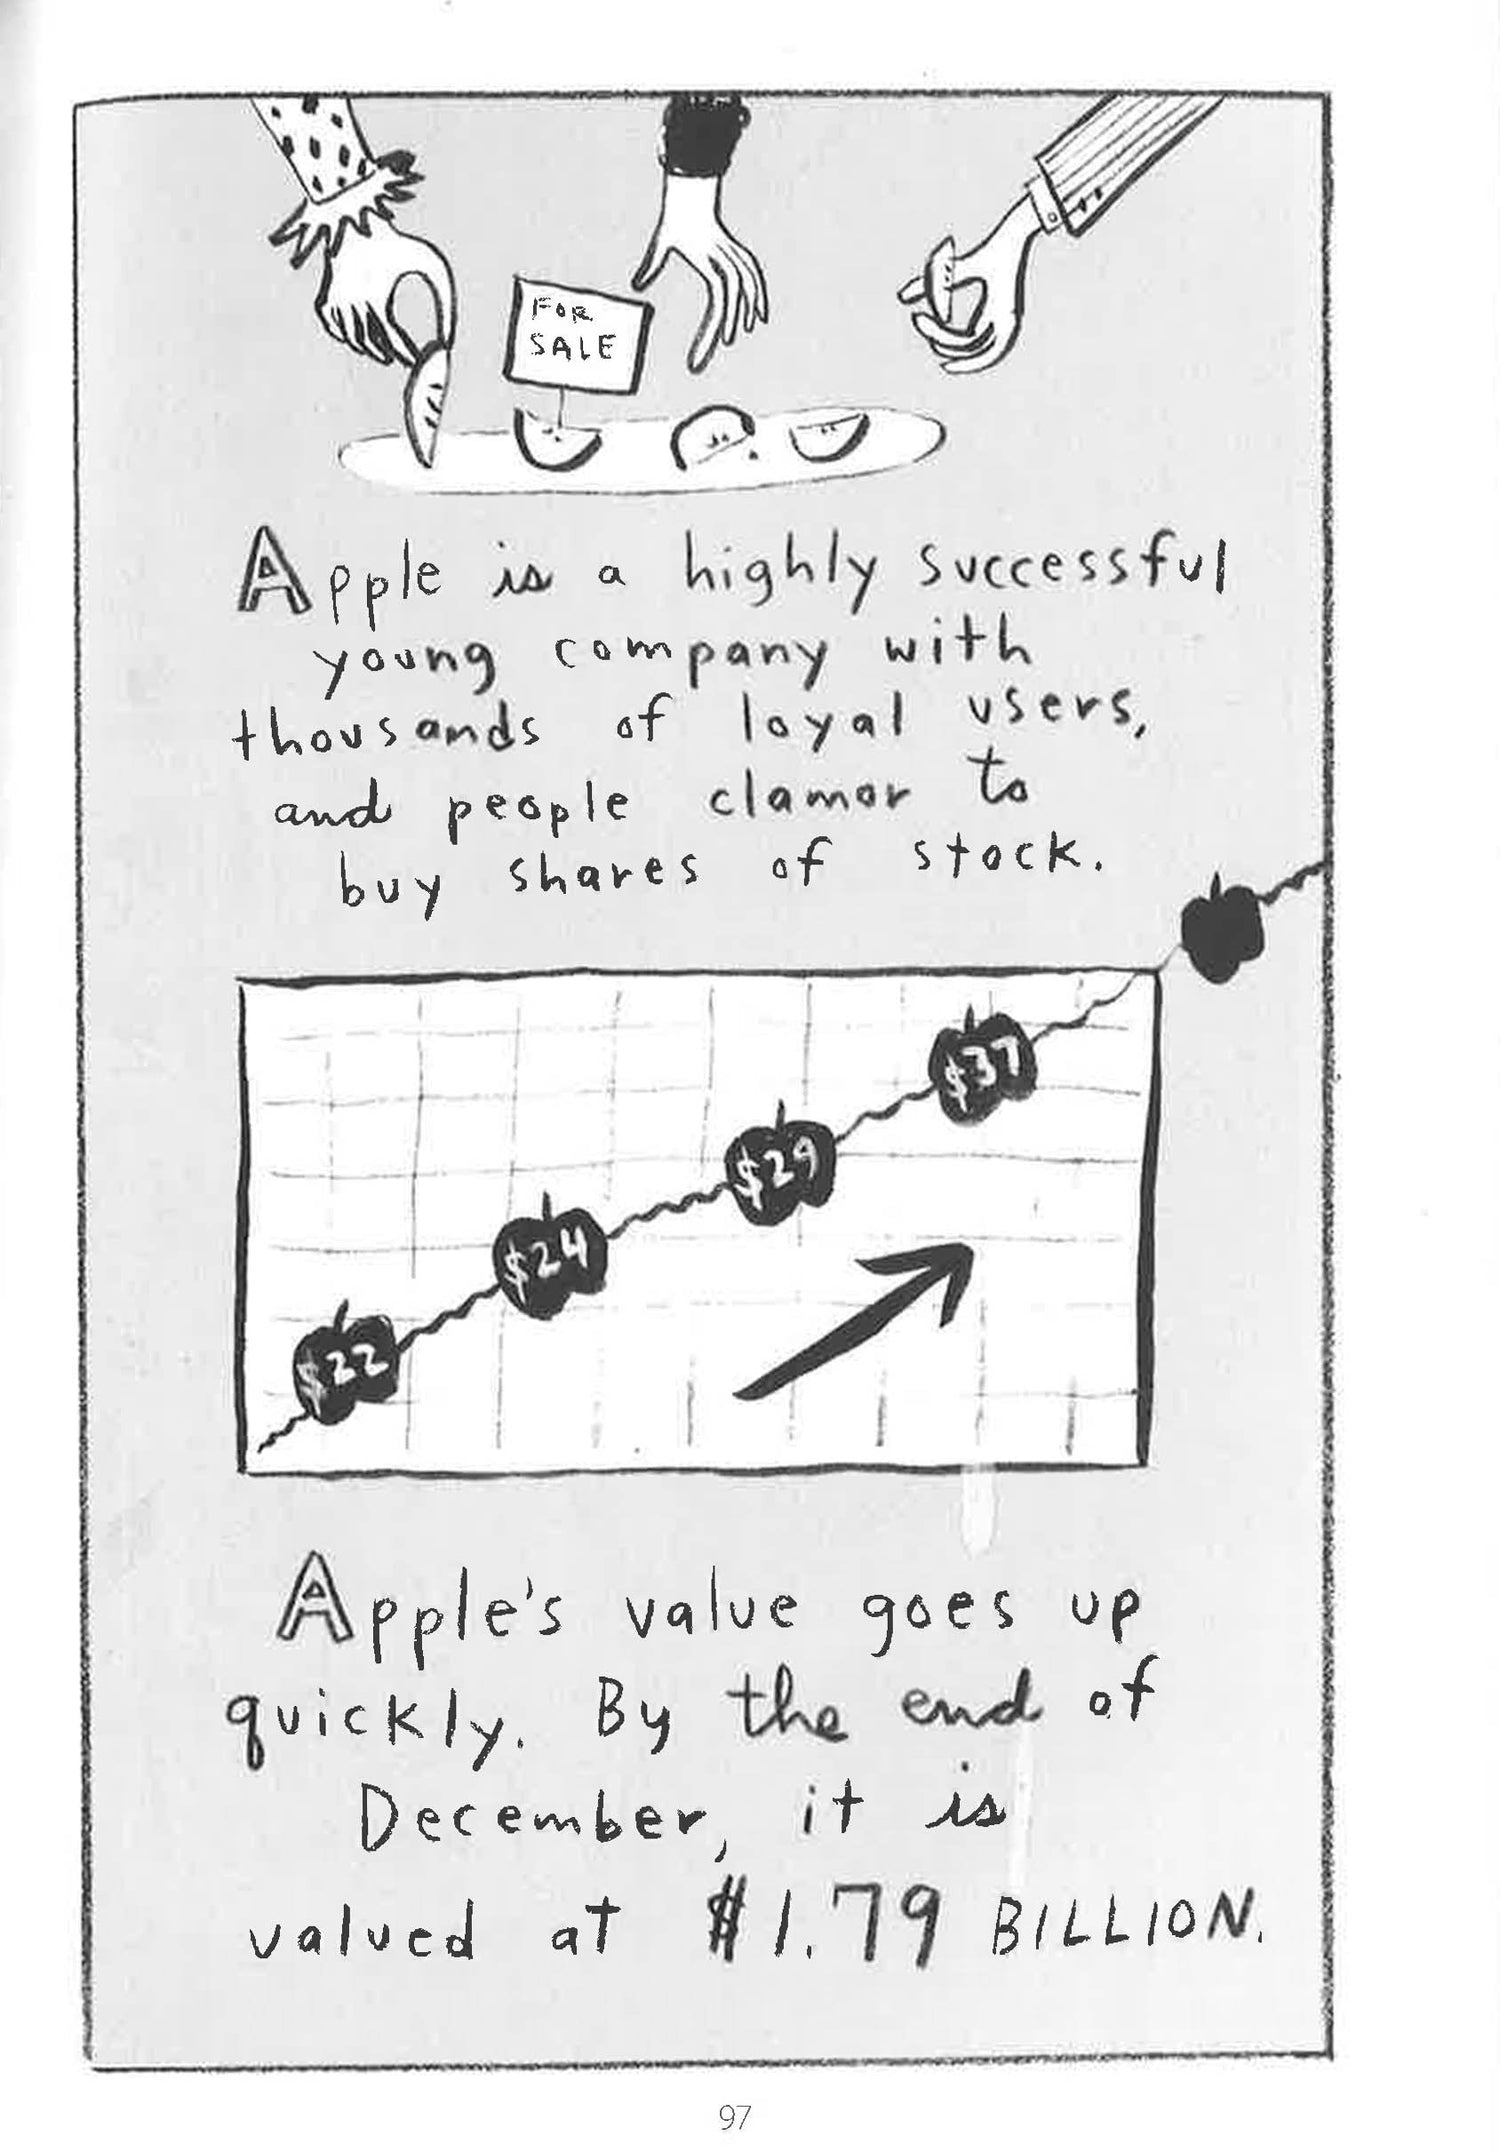 FOR
SALE
Apple is a highly successful
young company with
thousands of loyal users,
and people clamor to
buy shares of stock.
$37
$29
$24
$22
Apple's value goes up
quickly. By the end of
December, it is
valued at $1.79 BILLION.
97